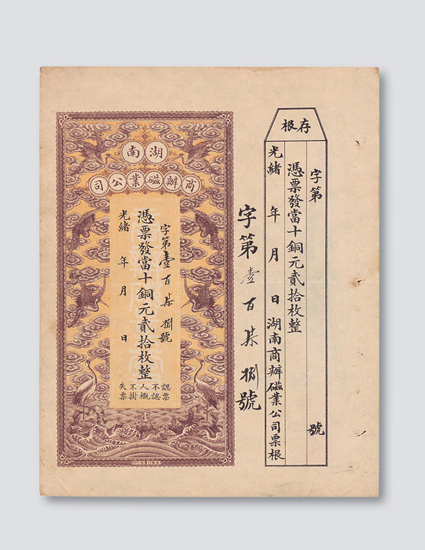 存根
字第 號
憑票發當十銅元貳拾枚整
光緒 年 月 日湖南商辦磁業公司票根
字第壹百柒捌號
湖南
商辦磁業公司
字第壹百柒捌號
憑票發當十銅元貳拾枚整
光緒 年 月 日
認票
不認
人概
不掛
失票